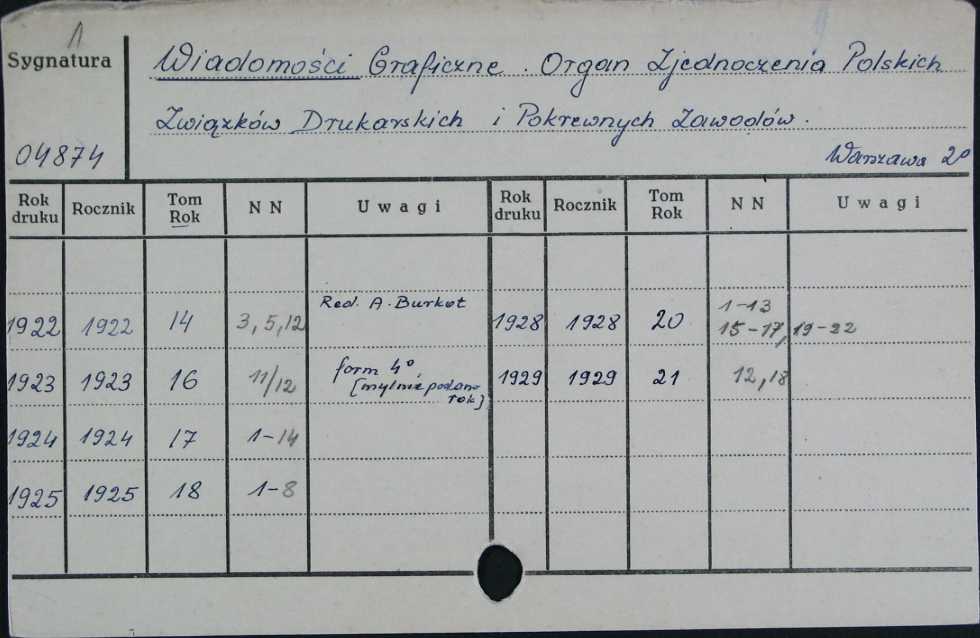 1
Sygnatura
Wiadomości Graficzne. Organ Zjednoczenia Polskich
Związków Drukarskich i Pokrewnych Zawodów.
04874
Warszawa 2º
Rok druku Rocznik Tom Rok N N Uwagi Rok druku Rocznik Tom Rok N N Uwagi
1922 1922 14 3, 5, 12 Red. A. Burkot 1928 1928 20 1-13
15-17, 19-22
1923 1923 16 11/12 form 4º 1929 1929 21 12, 18
[mylnie podano
rok]
1924 1924 17 1-14
1925 1925 18 1-8